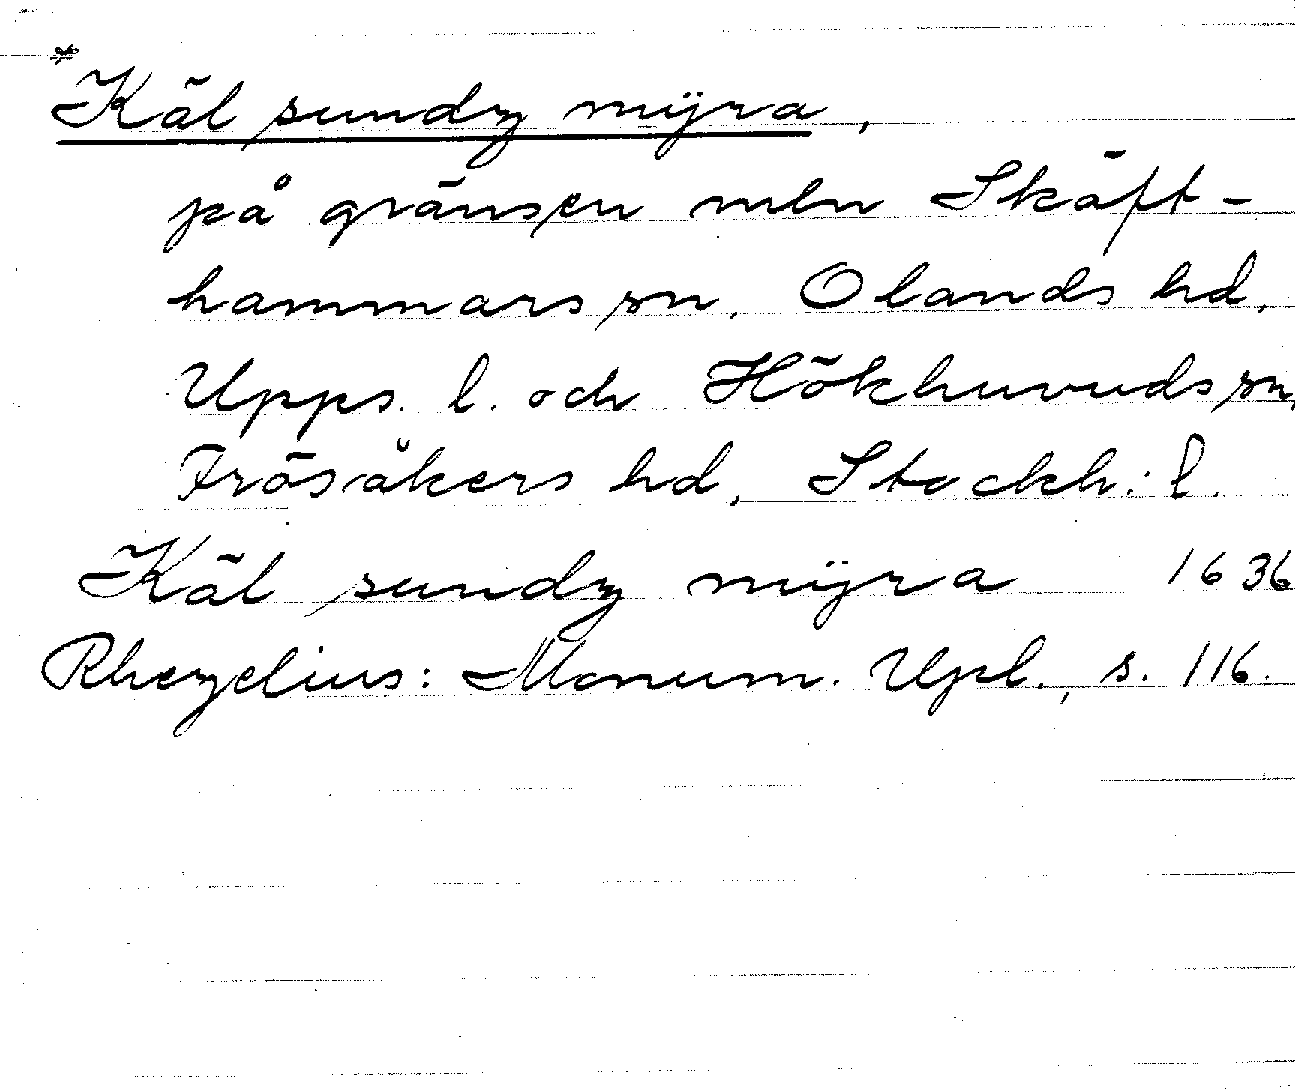 *Käl sundz mÿra,
på gränsen mln Skäft-
hammars sn, Olands hd,
Upps. l. och Hökhuvuds sn,
Frösåkers hd, Stockh: l.
Käl sundz mÿra 1636
Rhezelius: Monum. Upl., s. 116.